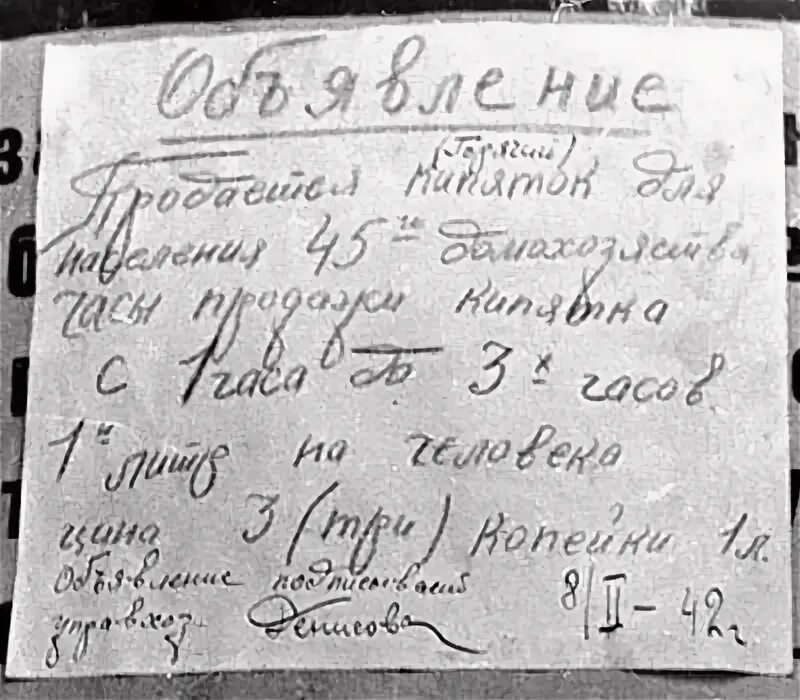 Объявление
(Горячий)
Продается кипяток для
населения 45го домохозяства
часы продажи кипятка
с 1 часа до 3х часов.
1н литр на человека
цина 3 (три) копейки 1 л.
Объявление подписывает
управхоз Денисова 8/II – 42 г